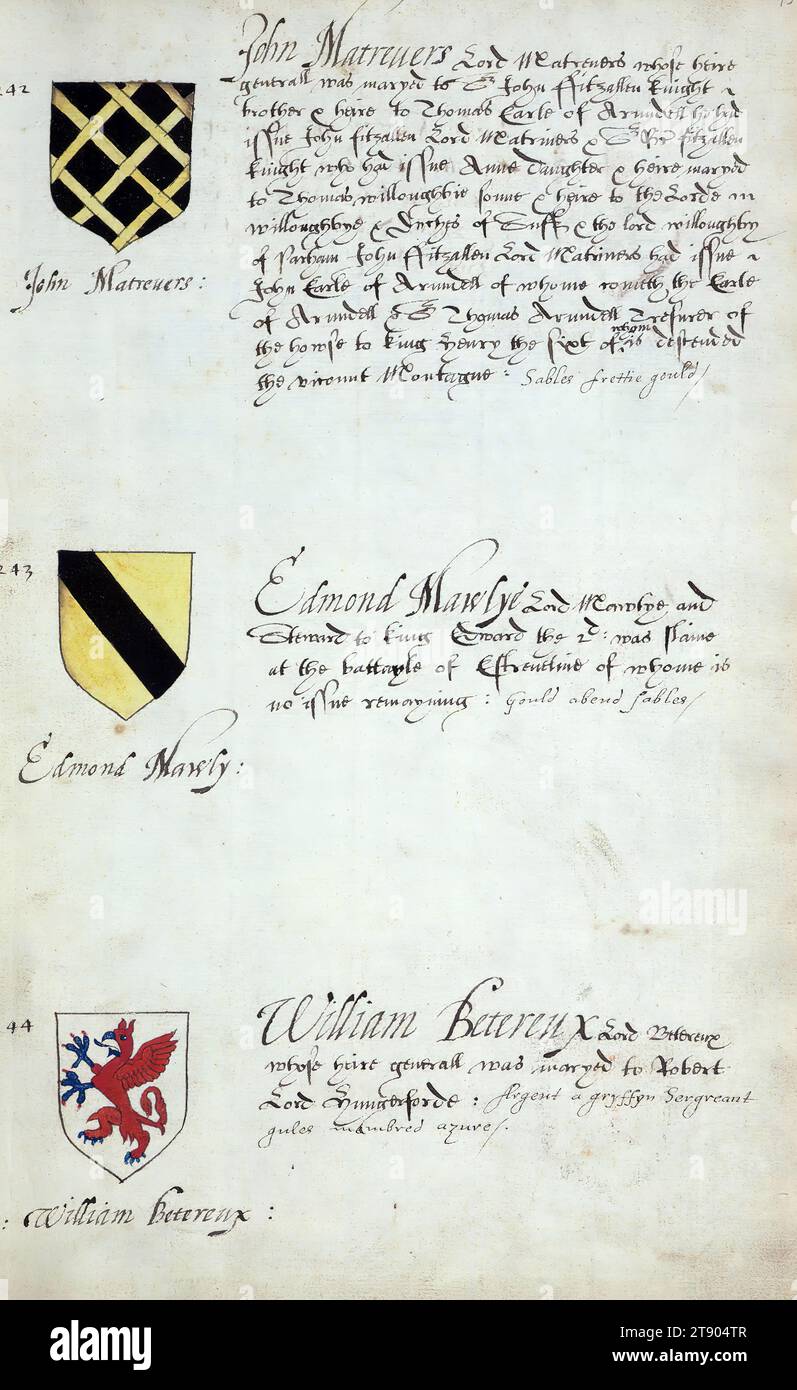 242
John Matrevers Lord Matrevers whose heire
generall was maryed to Sr John ffitzallen knight
brother & heire to Thomas Earle of Arundell he had
issue John fitzallen Lord Matrivers & Sr fitzallen
knight who had issue Anne daughter & heire maryed
to Thomas willoughbie sonne & heire to the Lorde
willoughbye & Dyches of Suff & the lord willoughby
of Parham John ffitzallen Lord Matrivers had issue
John Earle of Arundell of whome cometh the Earle
of Arundell & Sr Thomas Arundell Tresurer of
the howse to king Henry the sixt of whom is descended
the vicount Montague : Sables frettie gould/
John Matrevers :
243
Edmond Mawlye Lord Mawlye and
Steward to king Edward the 2d : was slaine
at the battayle of Estreveline of whome is
no issue remayning : Gould abend sables/
Edmond Mawly :
44
William Betereux Lord Betereux
whose heire generall was maryed to Robert
Lord Hungerforde : Argent a gryffyn Sergreant
gules membred azure/.
: William Betereux :
alamy
alamy
Image ID: 2T904TR
www.alamy.com